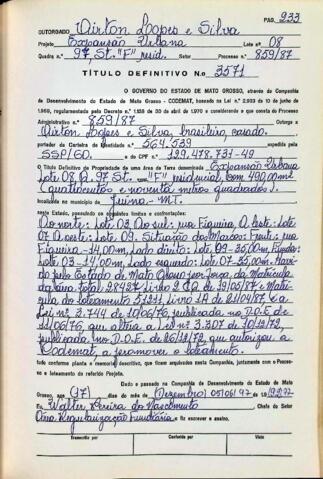 PAG. 933
OUTORGADO Airton Lopes e Silva
Projeto Expansão Urbana Lote nº 08
Quadra n.º 97, St. "F" resid. Setor Processo n.º 859/87
TÍTULO DEFINITIVO N.o 3571
O GOVERNO DO ESTADO DE MATO GROSSO, através da Companhia
de Desenvolvimento do Estado de Mato Grosso - CODEMAT, baseado na Lei n.º 2.933 de 10 de junho de
1969, regulamentada pelo Decreto n.º 1.128 de 30 de abril de 1970 e considerando o que consta do Processo
Administrativo n.º 859/87 Outorga a
Airton Lopes e Silva, brasileiro, casado.
portador da Carteira de Identidade n.º 564.539
SSP/GO. e do CPF n.º 129.478.731-49
O Título Definitivo de Propriedade de uma área de Terra denominada Expansão Urbana
Lote 08 Q. 97 St. "F" residencial, com 490,00 m²
(quatrocentos e noventa metros quadrados).
localizada no município de Juina - MT.
neste Estado, possuindo os seguintes limites e confrontações:
Ao norte: Lote 03. Ao sul: rua Figueira. A leste: Lote
07. A oeste: Lote 09. Situação dos Marcos: Frente: rua
Figueira - 14,00m. Lado direito: Lote 09 - 35,00m. Fundos:
Lote 03 - 14,00m. Lado esquerdo: Lote 07 - 35,00m. Havi-
do pelo Estado de Mato Grosso por força da Matrícula
da área total: 28427 Livro 2 de 19/05/87 e Matrí-
cula do loteamento 51211, Livro 1A de 21/04/87 e a
Lei nº 3.744 de 10/06/76, publicada no D.O.E. de
11/06/76, que altera a Lei nº 3.307 de 10/12/72,
publicada no D.O.E. de 26/12/72, que autorizou a
Codemat, a promover o loteamento.
tudo conforme planta e memorial descritivo, que ficam arquivados nesta Companhia, juntamente com o Proces-
so e loteamento do referido Projeto.
Dado e passado na Companhia de Desenvolvimento do Estado de Mato
Grosso, aos (17) dias do mês de (Dezembro)
Eu Walter Pereira do Nascimento Chefe do Setor
Regularização Fundiária fiz escrever e assino.
Transcrito por
Conferido por
Visto